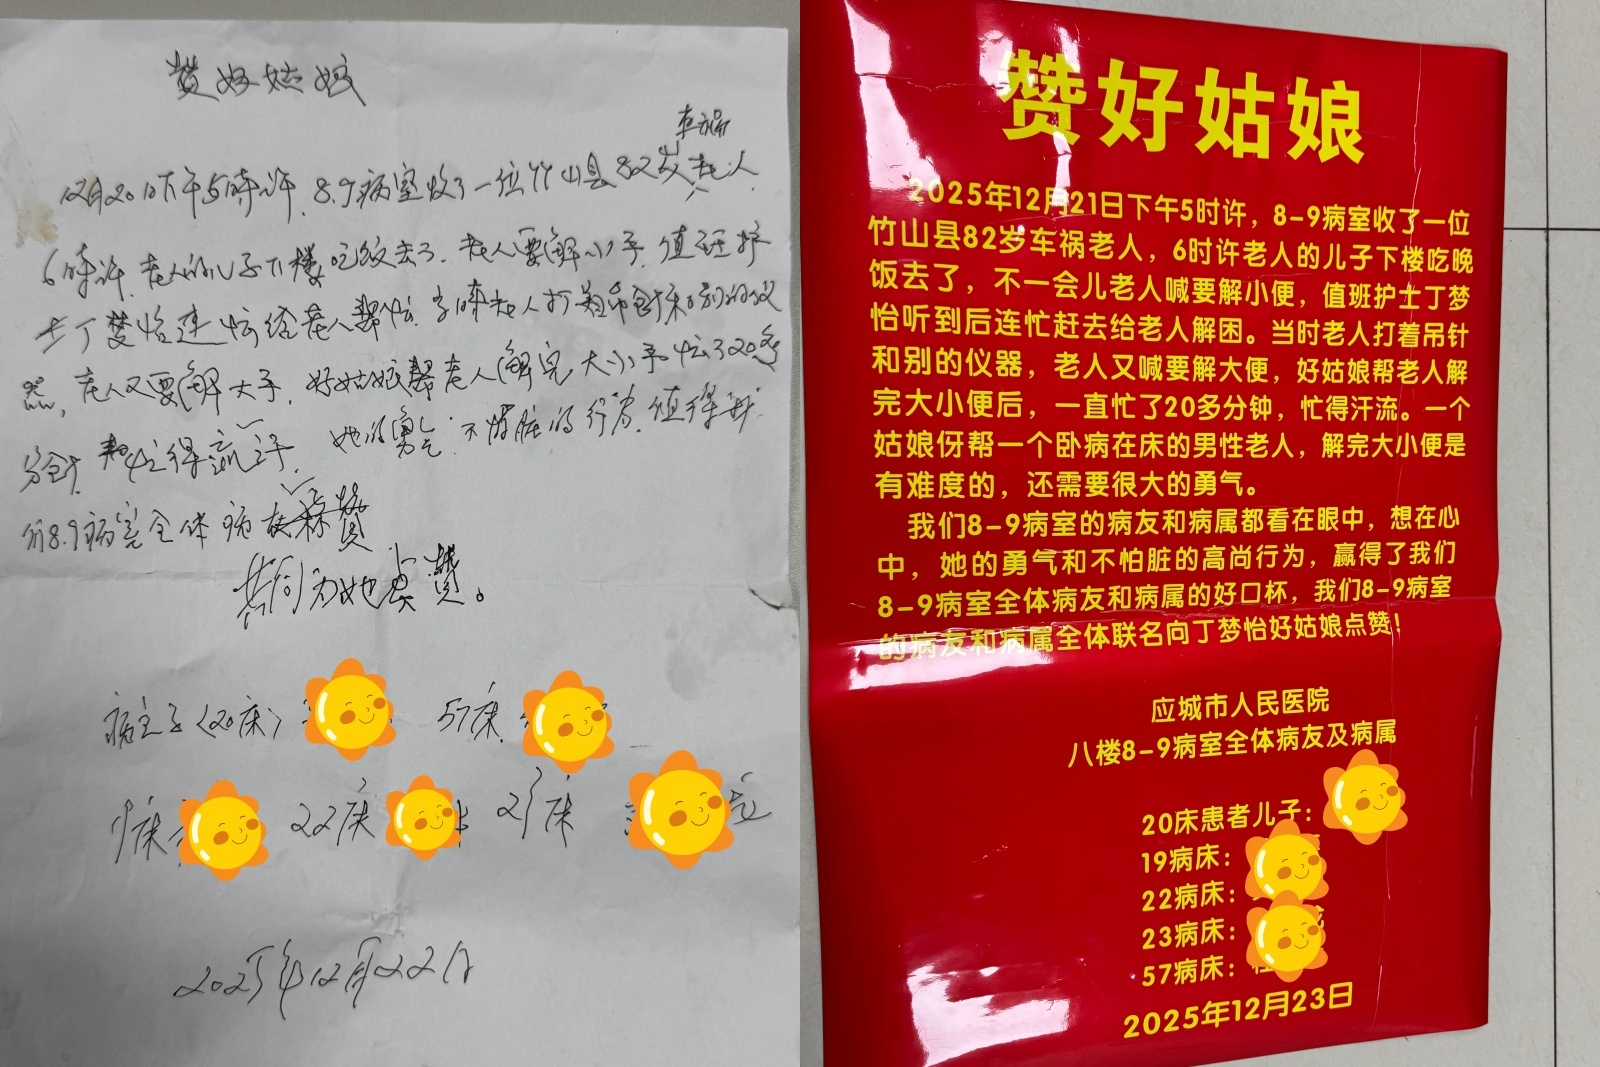 赞好姑娘
车祸
12月20日下午5时许，8.9病室收了一位竹山县82岁老人
6时许，老人的儿子下楼吃饭去了，老人要解小手，值班护
士丁梦怡连忙给老人帮忙，当时老人打着吊针和别的仪
器，老人又要解大手，好姑娘帮老人解完大小手忙了20多
分钟，忙得流汗，她的勇气，不怕脏的行为，值得我
们8.9病室全体病友称赞
共同为她点赞。
病主子（20床） 57床
19床 22床 23床
2025年12月22日
赞好姑娘
2025年12月21日下午5时许，8-9病室收了一位
竹山县82岁车祸老人，6时许老人的儿子下楼吃晚
饭去了，不一会儿老人喊要解小便，值班护士丁梦
怡听到后连忙赶去给老人解困。当时老人打着吊针
和别的仪器，老人又喊要解大便，好姑娘帮老人解
完大小便后，一直忙了20多分钟，忙得汗流。一个
姑娘伢帮一个卧病在床的男性老人，解完大小便是
有难度的，还需要很大的勇气。
我们8-9病室的病友和病属都看在眼中，想在心
中，她的勇气和不怕脏的高尚行为，赢得了我们
8-9病室全体病友和病属的好口杯，我们8-9病室
的病友和病属全体联名向丁梦怡好姑娘点赞！
应城市人民医院
八楼8-9病室全体病友及病属
20床患者儿子：
19病床：
22病床：
23病床：
57病床：
2025年12月23日